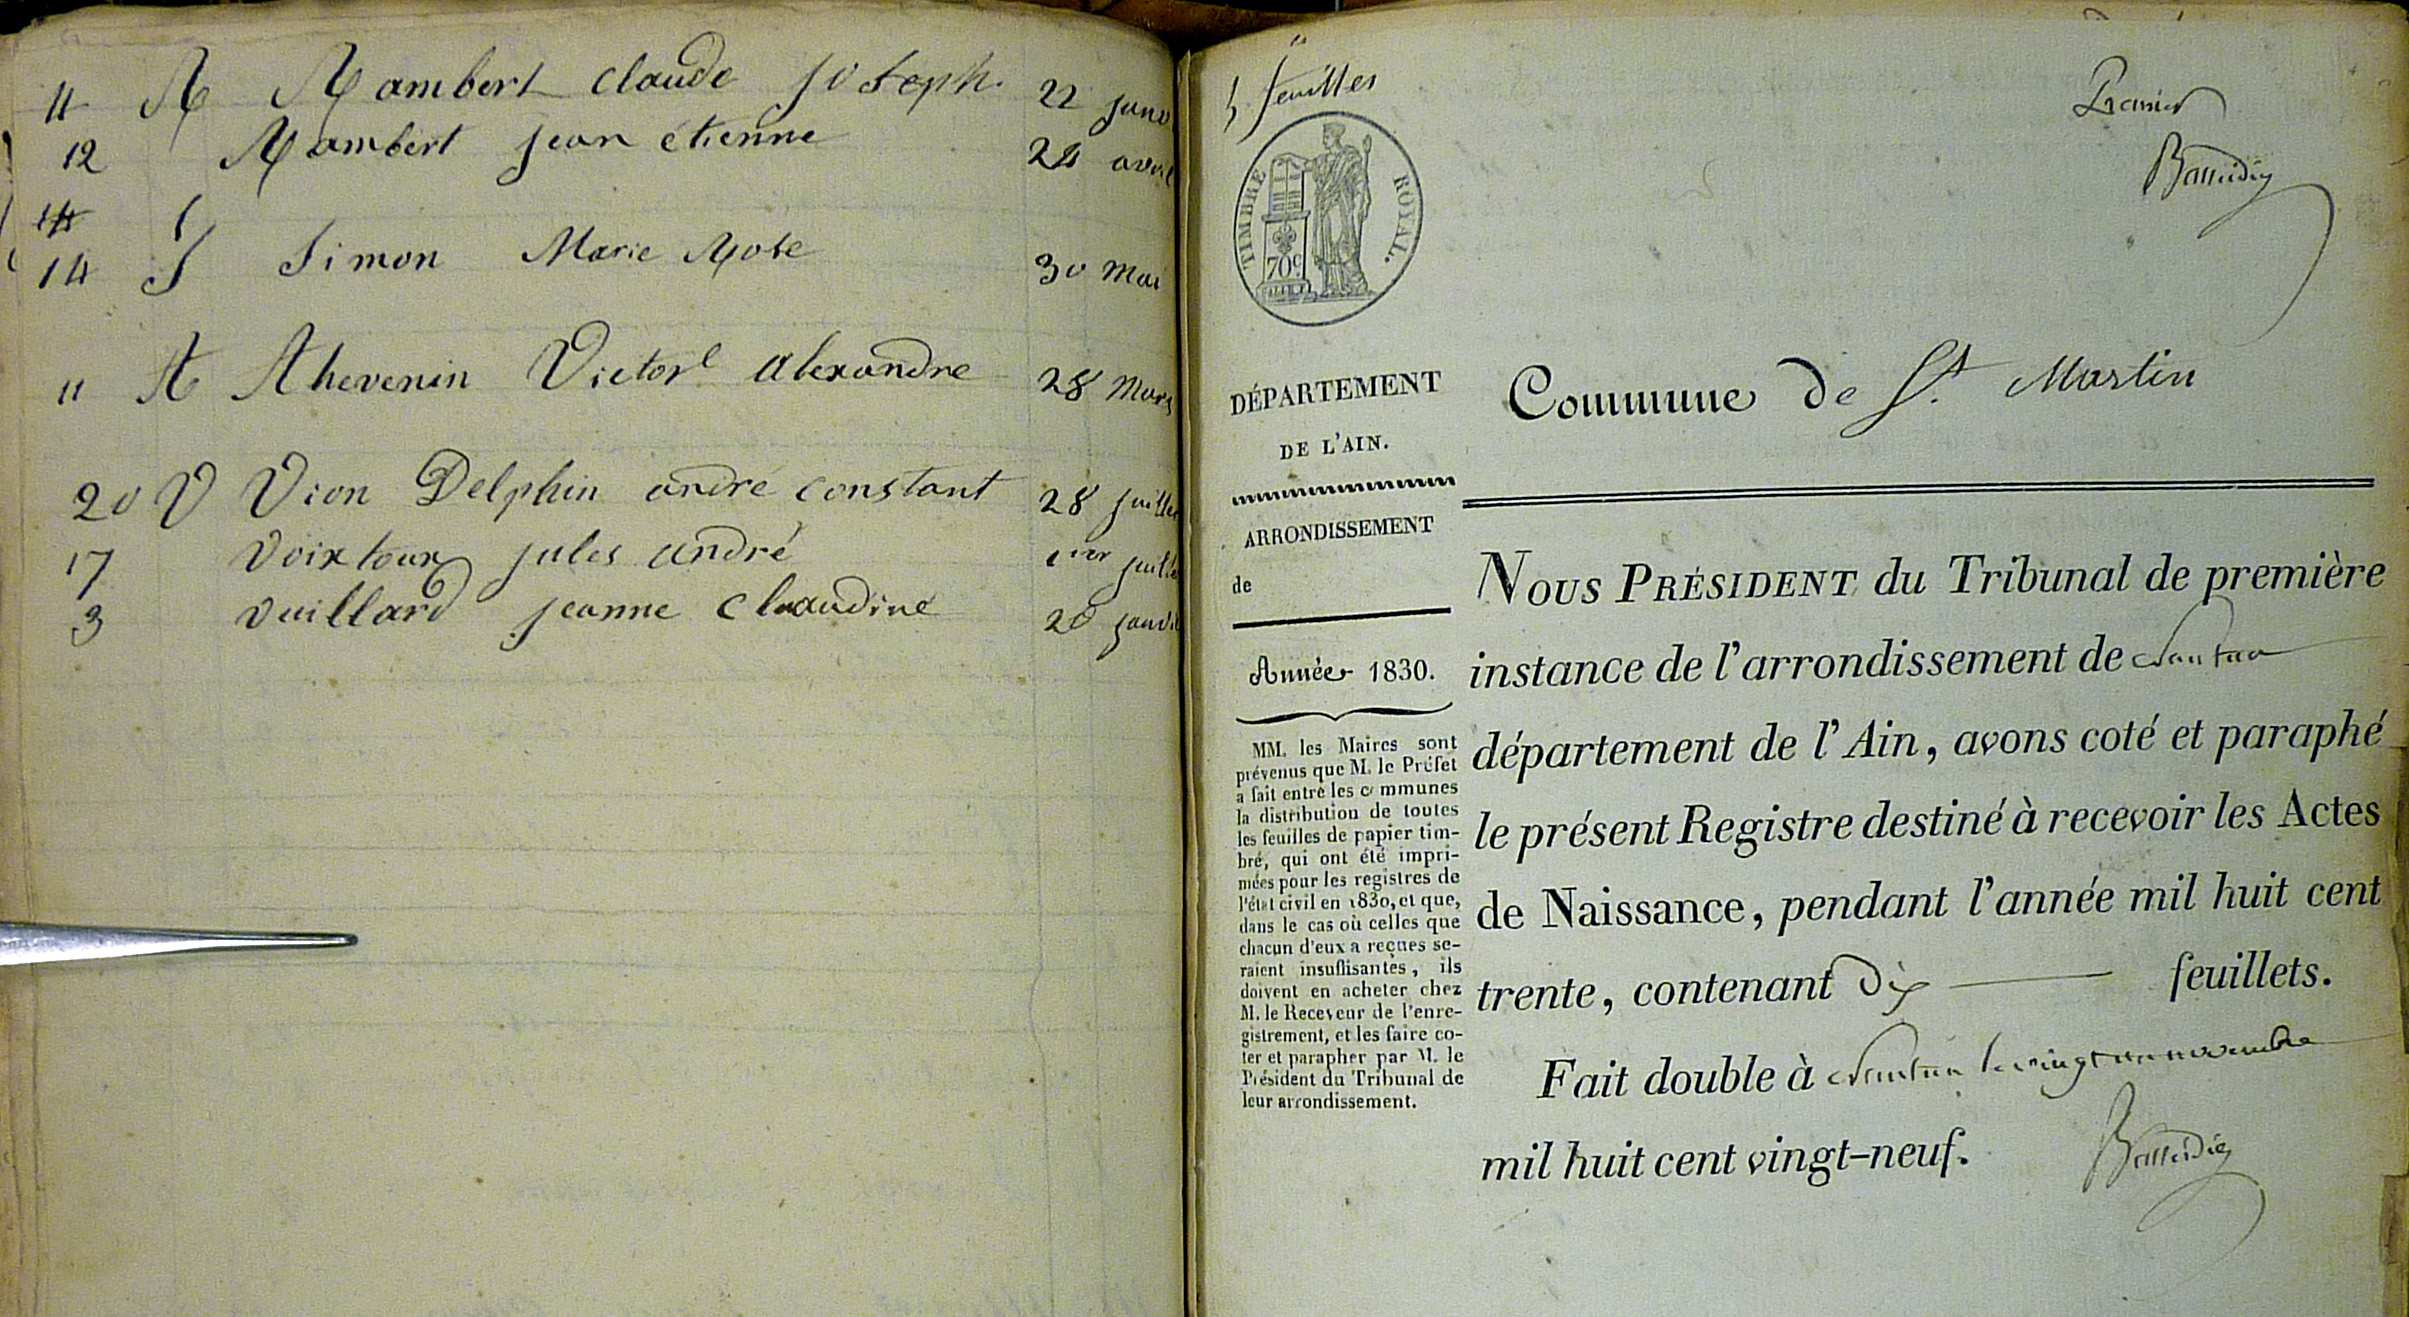 4 R Rambert Claude Joseph. 22 janv
12 Rambert jean étienne 24 avril
14
14 S Simon Marie Rose 30 Mai
11 T Thevenin Victor alexandre 28 Mars
20 V Vion Delphin andré constant 28 juillet
17 Voixtoux jules andré 1er juillet
3 Vuillard jeanne Claudine 20 janvi
5 feuilles
Premier
TIMBRE ROYAL.
70c
DÉPARTEMENT
DE L'AIN.
ARRONDISSEMENT
de
Année 1830.
MM. les Maires sont
prévenus que M. le Préfet
a fait entre les communes
la distribution de toutes
les feuilles de papier tim-
bré, qui ont été impri-
mées pour les registres de
l'état civil en 1830, et que,
dans le cas où celles que
chacun d'eux a reçues se-
raient insuffisantes, ils
doivent en acheter chez
M. le Receveur de l'enre-
gistrement, et les faire co-
ter et parapher par M. le
Président du Tribunal de
leur arrondissement.
Commune de St. Martin
NOUS PRÉSIDENT du Tribunal de première
instance de l'arrondissement de Nantua
département de l'Ain, avons coté et paraphé
le présent Registre destiné à recevoir les Actes
de Naissance, pendant l'année mil huit cent
trente, contenant dix feuillets.
Fait double à Nantua le vingt un novembre
mil huit cent vingt-neuf.